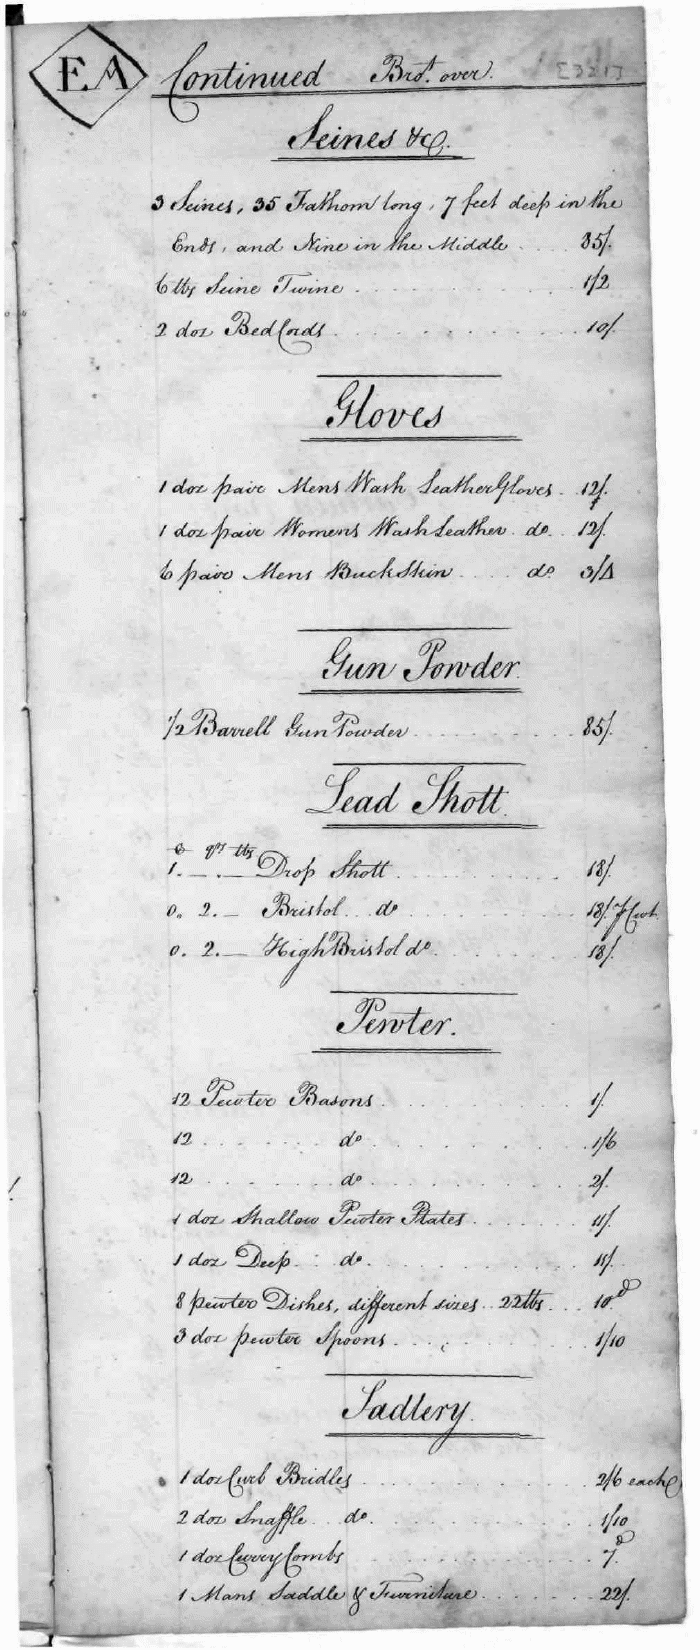 EA Continued Brot. over. [321]
Seines &C.
3 Seines, 35 Fathom long, 7 feet deep in the
Ends, and Nine in the Middle .... 35/.
6 lbs Seine Twine .......... 1/2
2 doz Bed Cords .......... 10/.
Gloves
1 doz pair Mens Wash Leather Gloves . 12/.
1 doz pair Womens Wash Leather do .. 12/.
6 pair Mens Buck Skin .... do 3/Δ
Gun Powder
1/2 Barrell Gun Powder .......... 85/.
Lead Shott.
C qrs lbs
1. — . — Drop Shott .......... 18/.
0. 2. — Bristol .. do .......... 18/. ⅌ Cwt.
0. 2. — High Bristol do .......... 18/.
Pewter.
12 Pewter Basons .......... 1/.
12 ....... do .......... 1/6
12 ....... do .......... 2/.
1 doz Shallow Pewter Plates ...... 11/.
1 doz Deep .. do .......... 11/.
8 pewter Dishes, different sizes .. 22 lbs ... 10d
3 doz pewter Spoons .......... 1/10
Sadlery.
1 doz Curb Bridles .......... 2/6 each
2 doz Snaffle .. do .......... 1/10
1 doz Currey Combs .......... 7d
1 Mans Saddle & Furniture ...... 22/.